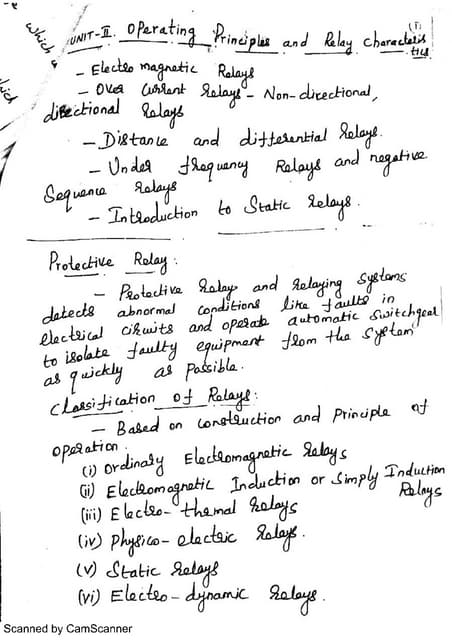 which
which
(1)
UNIT-II. Operating Principles and Relay Characteris
tics
- Electro magnetic Relays
- Over Current Relays - Non-directional,
directional Relays
- Distance and differential Relays.
- Under frequency Relays and negative
Sequence Relays
- Introduction to Static Relays.
Protective Relay:
- Protective Relay and Relaying Systems
detects abnormal conditions like faults in
electrical circuits and operate automatic Switchgear
to isolate faulty equipment from the System
as quickly as Possible.
Classification of Relays:
- Based on construction and Principle of
operation.
(i) Ordinary Electromagnetic Relays
(ii) Electromagnetic Induction or Simply Induction
Relays
(iii) Electro-thermal Relays
(iv) Physico-electric Relays.
(v) Static Relays
(vi) Electro-dynamic Relays.
Scanned by CamScanner